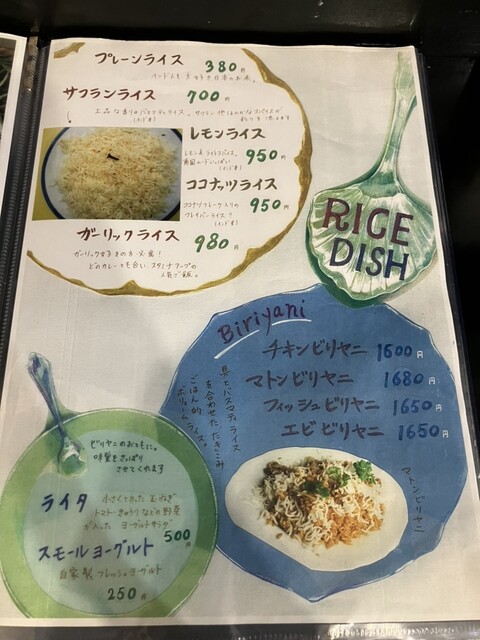 プレーンライス 380円
サフランライス 700円
上品な香りのバスマティライス。サフラン
(インド米)
レモンライス
950円
(インド米)
ココナッツライス
ココナツフレーク入りの 950円
フレイバーライス!!
(インド米)
ガーリックライス
980円
ガーリック好きの方必食!
どのカレーとも合い、スタミナアップの
人気ご飯。
RICE
DISH
Biriyani
チキンビリヤニ 1600円
マトンビリヤニ 1680円
フィッシュビリヤニ 1650円
エビビリヤニ 1650円
具とバスマティライス
を合わせた たきこみ
ごはん的
ボリュームライス。
マトンビリヤニ
ビリヤニのおともに。
味覚をさっぱり
させてくれます
ライタ 小さくきざんだ玉ねぎ
トマト・きゅうりなどの野菜
が入った ヨーグルトサラダ
500円
スモールヨーグルト
自家製フレッシュヨーグルト
250円